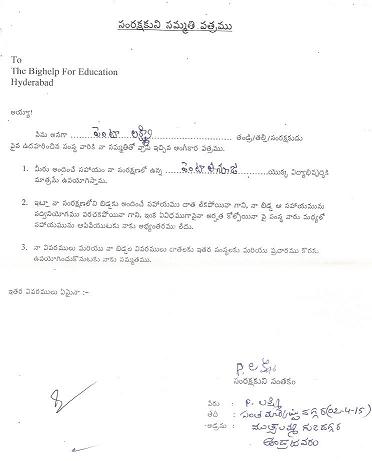 సంరక్షకుని సమ్మతి పత్రము
To
The Bighelp For Education
Hyderabad
అయ్యా!
నేను అనగా పెంటా లక్ష్మి తండ్రి/తల్లి/సంరక్షకుడు
పైన ఉదహరించిన సంస్థ వారికి నా సమ్మతితో వ్రాసి ఇచ్చిన అంగీకార పత్రము.
1. మీరు అందించే సహాయం నా సంరక్షణలో ఉన్న పెంటా యొక్క విద్యాభివృద్ధికి
మాత్రమే ఉపయోగిస్తాను.
2. ఇట్లా నా సంరక్షణలోని బిడ్డకు అందించే సహాయము దాత లేకపోయినా గాని, నా బిడ్డ ఆ సహాయమును
సద్వినియోగము పరచకపోయినా గాని, ఇంకే విధముగానైనా అర్హత కోల్పోయినా పై సంస్థ వారు మధ్యలో
సహాయమును ఆపివేయుటకు నాకు అభ్యంతరము లేదు.
3. నా వివరములు మరియు నా బిడ్డల వివరములు దాతలకు ఇతర సంస్థలకు మరియు ప్రచారము కొరకు
ఉపయోగించుకొనుటకు నాకు సమ్మతము.
ఇతర వివరములు ఏమైనా :-
P. లక్ష్మి
సంరక్షకుని సంతకం
పేరు : P. లక్ష్మి
తేది : (02-4-15)
అడ్రసు :